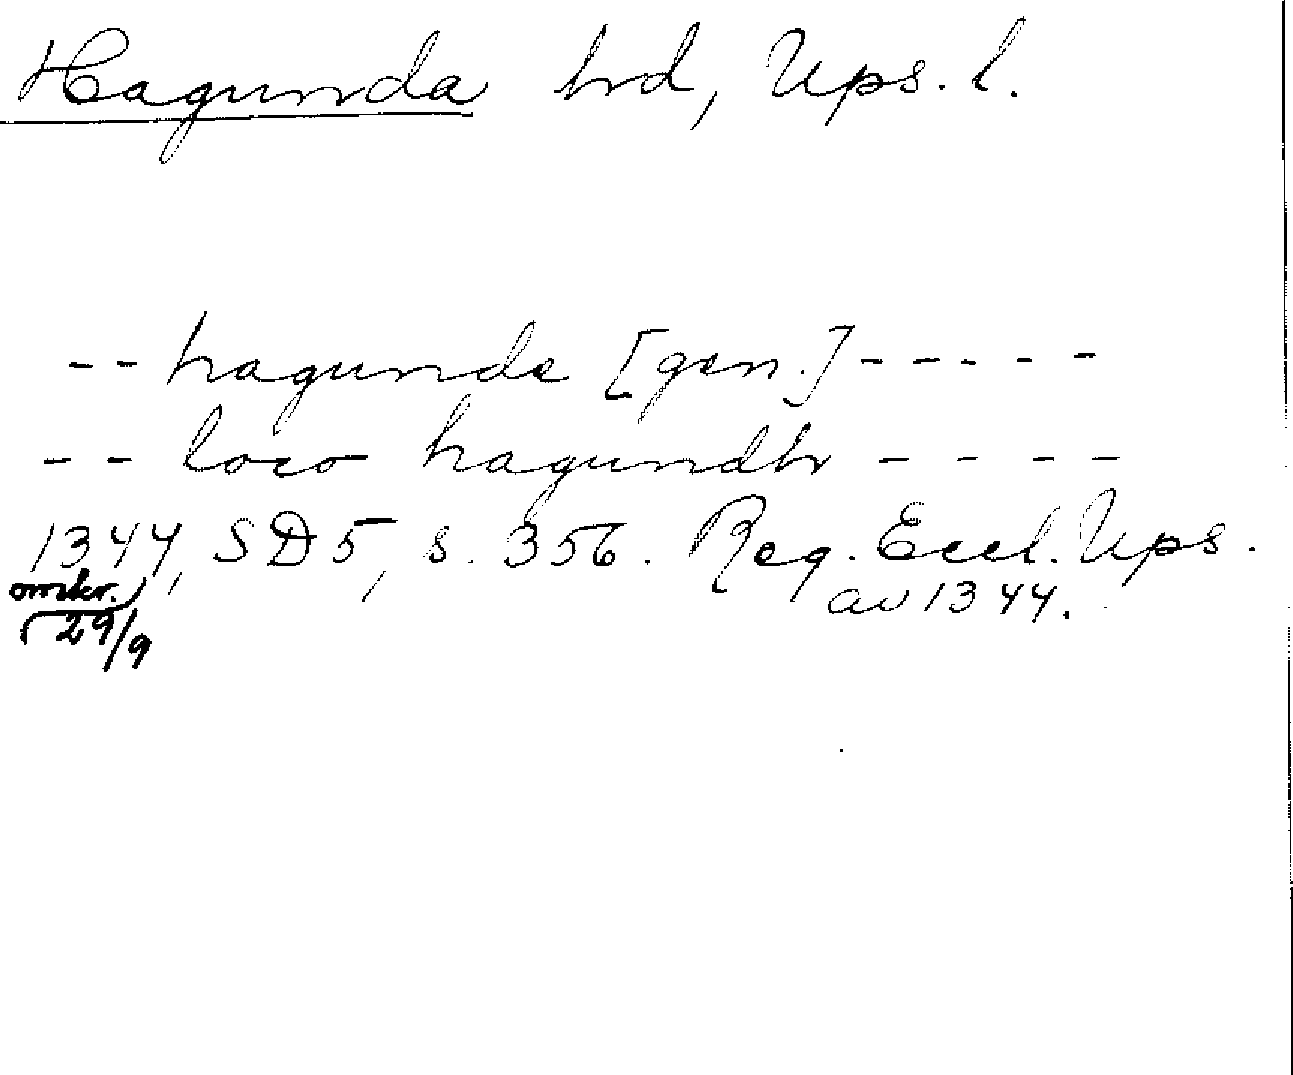 Hagunda hd, Ups. l.
-- hagunde [gen.] -----
-- loco hagundh ----
1344, SD 5, s. 356. Reg. Eccl. Ups.
omkr. av 1344.
29/9